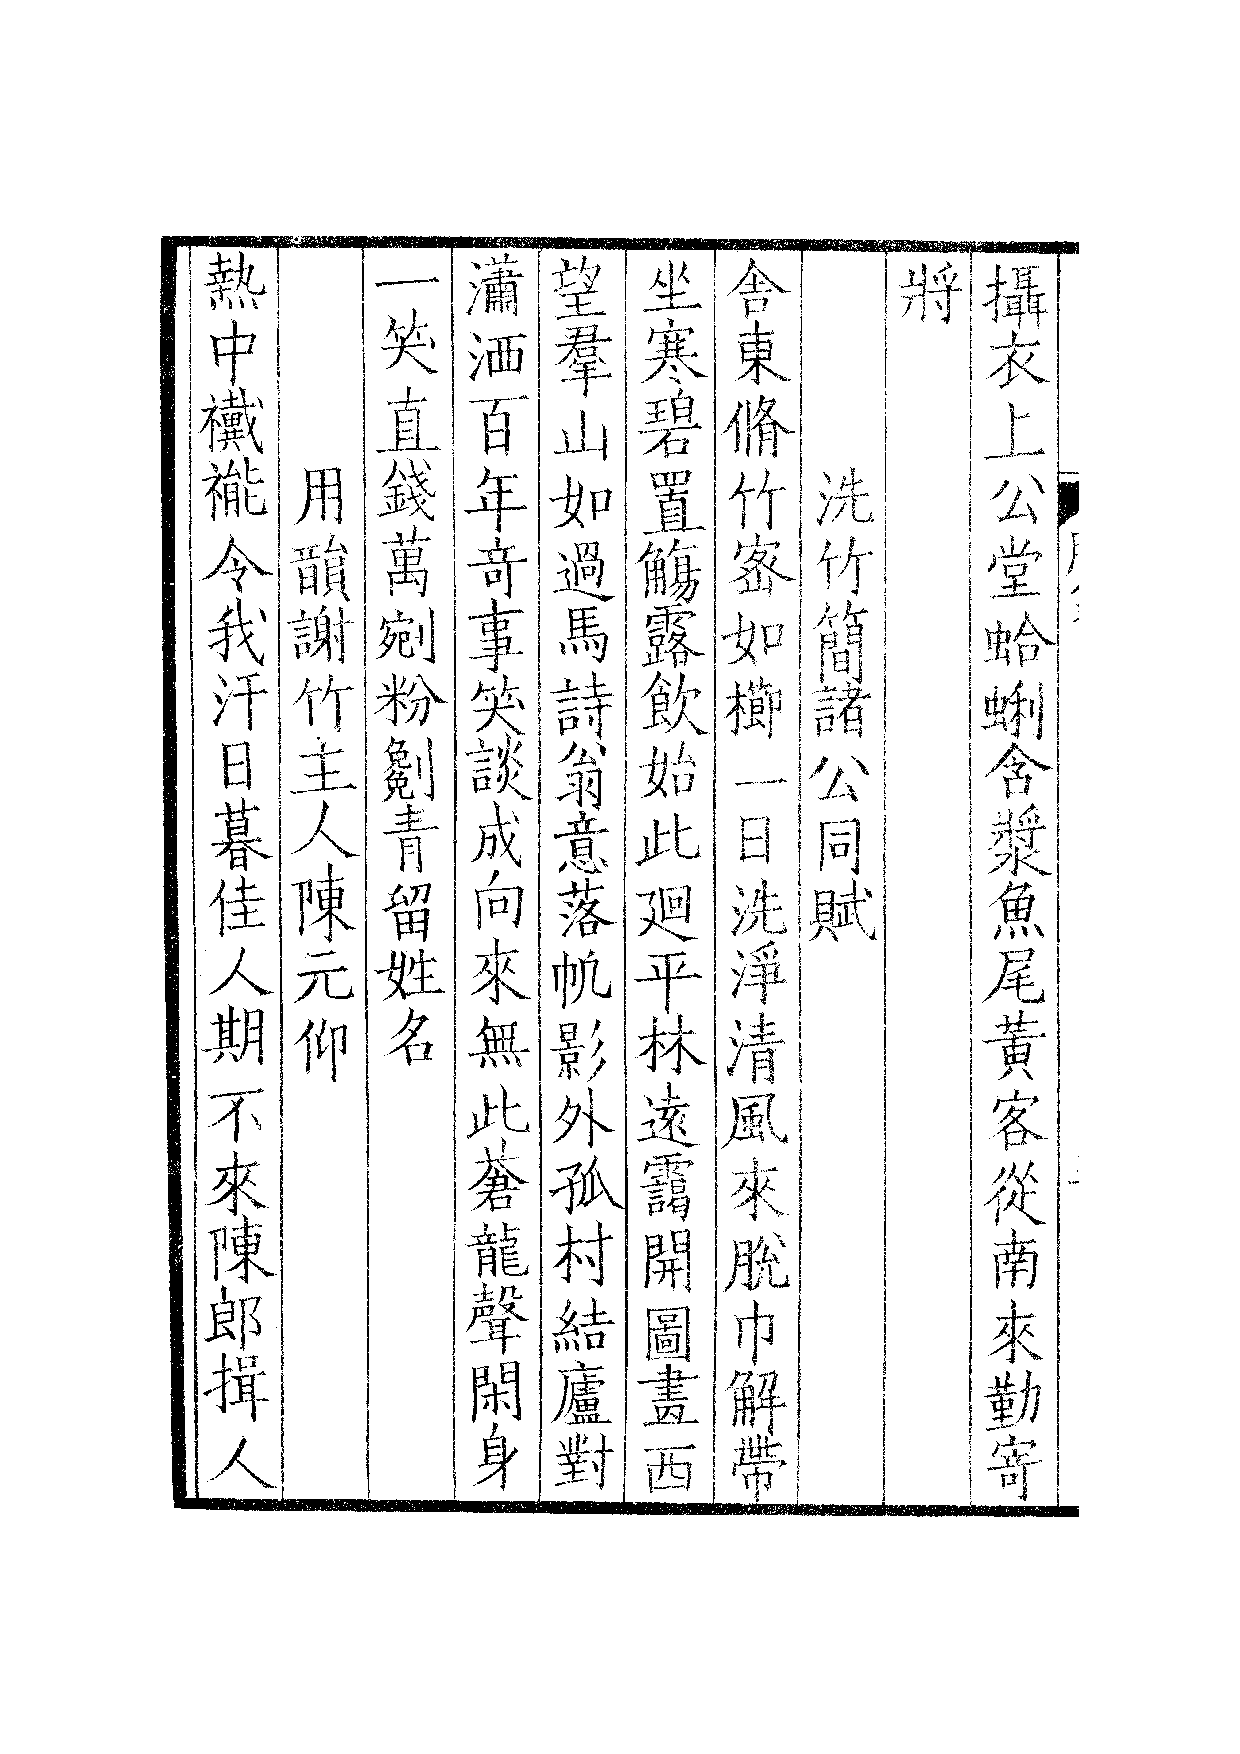 攝衣上公堂蛤蜊含漿魚尾黃客從南來勤寄
將
洗竹簡諸公同賦
舎東脩竹宻如櫛一日洗淨清風來脫巾解帶
坐寒碧置觴露飲始此廻平林遠靄開圖畫西
望羣山如過馬詩翁意落帆影外孤村結廬對
瀟洒百年竒事笑談成向來無此蒼龍聲閑身
一笑直錢萬剜粉劖青留姓名
用韻謝竹主人陳元仰
熱中襶褦令我汗日暮佳人期不來陳郎揖人